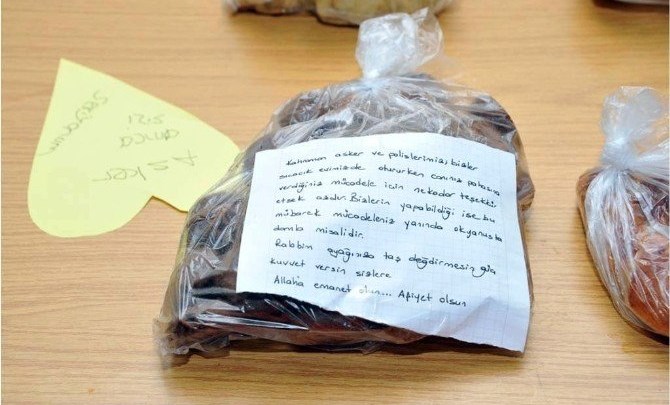 Asker
amca
sizi
seviyorum
Kahraman asker ve polislerimiz; bizler
sıcacık evimizde otururken canınız pahasına
verdiğiniz mücadele için nekadar teşekkür
etsek azdır. Bizlerin yapabildiği ise bu
mübarek mücadeleniz yanında okyanusta
damla misalidir.
Rabbim ayağınıza taş değdirmesin güç
kuvvet versin sizlere
Allaha emanet olun.... Afiyet olsun